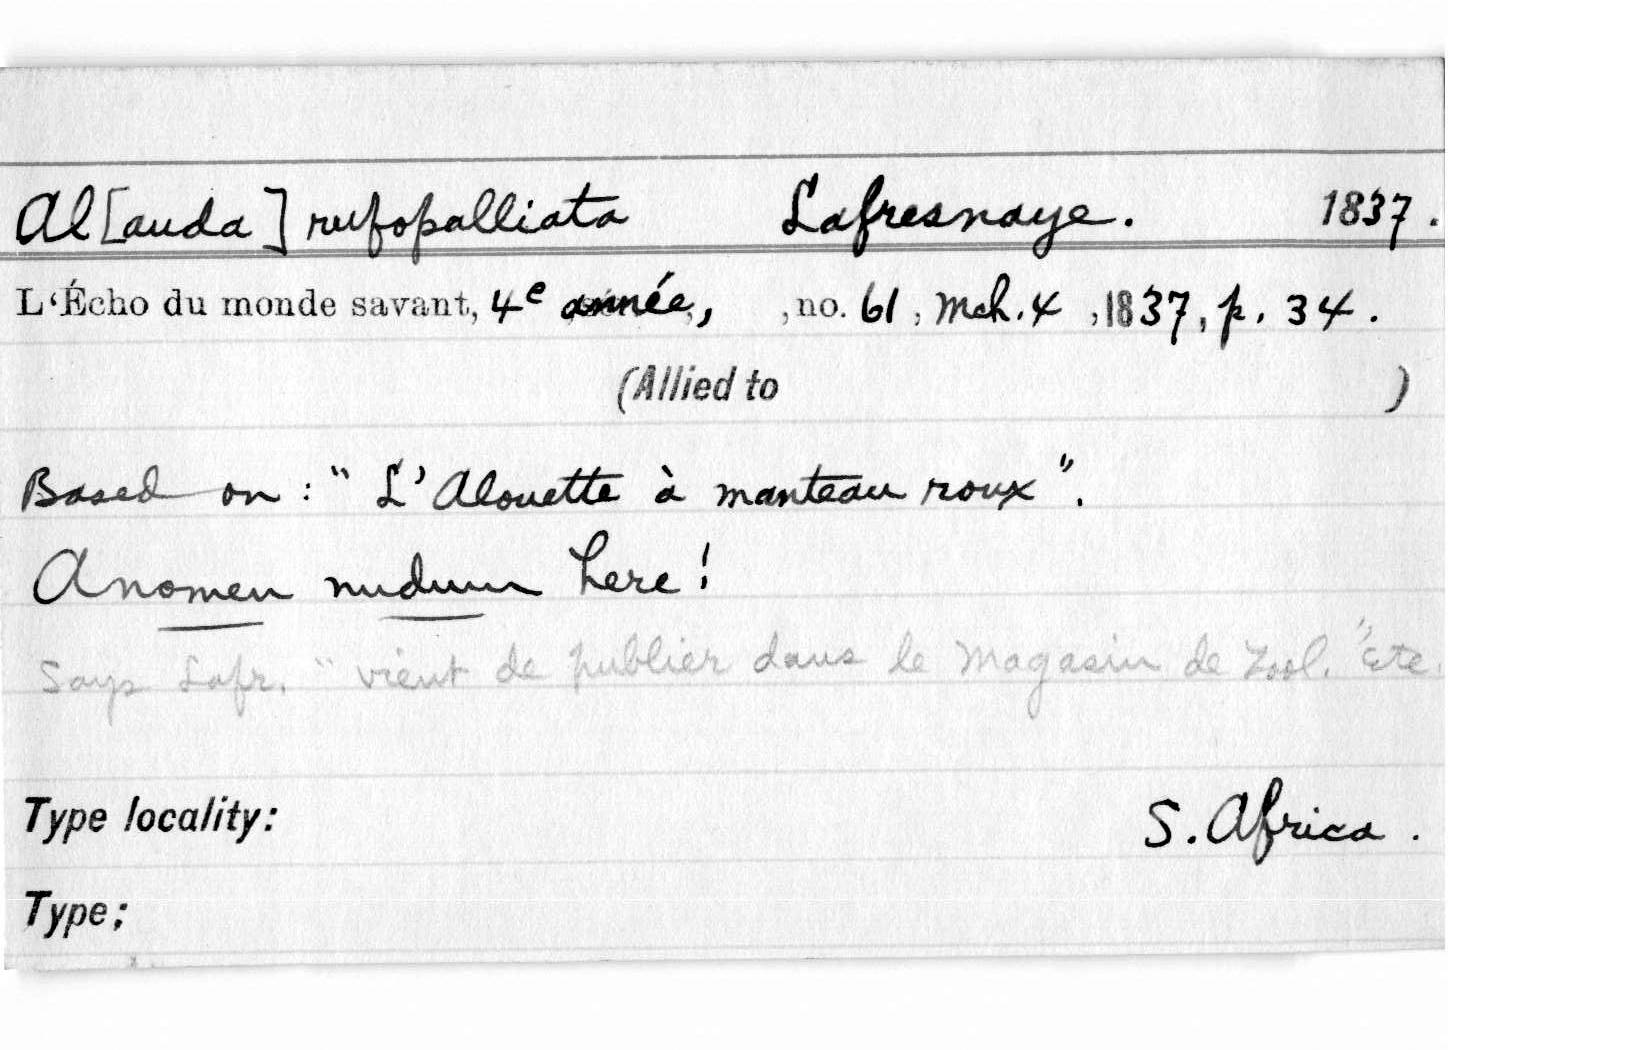 Al[auda] rufopalliata Lafresnaye. 1837.
L'Écho du monde savant, 4e année, , no. 61, Mch. 4, 1837, p. 34.
(Allied to )
Based on: "L'Alouette à manteau roux".
A nomen nudum here!
Says Lafr. "vient de publier dans le Magasin de Zool." Etc.
Type locality: S. Africa.
Type: